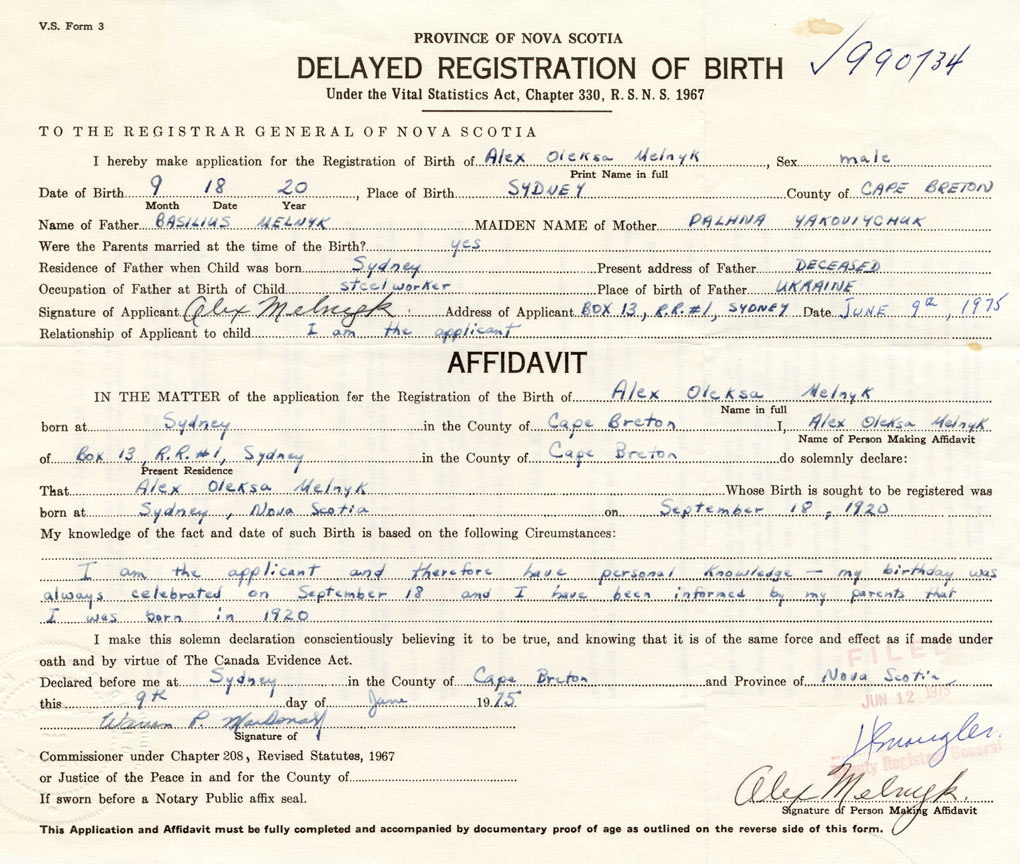 V.S. Form 3
PROVINCE OF NOVA SCOTIA
DELAYED REGISTRATION OF BIRTH
√990134
Under the Vital Statistics Act, Chapter 330, R.S.N.S. 1967
TO THE REGISTRAR GENERAL OF NOVA SCOTIA
I hereby make application for the Registration of Birth of Alex Oleksa Melnyk, Sex male
Print Name in full
Date of Birth 9 18 20, Place of Birth SYDNEY County of CAPE BRETON
Month Date Year
Name of Father BASILIUS MELNYK MAIDEN NAME of Mother PALHNA YAKOVIYCHUK
Were the Parents married at the time of the Birth? yes
Residence of Father when Child was born Sydney Present address of Father DECEASED
Occupation of Father at Birth of Child steelworker Place of birth of Father UKRAINE
Signature of Applicant Alex Melnyk. Address of Applicant BOX 13, R.R.#1, SYDNEY Date JUNE 9th, 1975
Relationship of Applicant to child I am the applicant
AFFIDAVIT
IN THE MATTER of the application for the Registration of the Birth of Alex Oleksa Melnyk
Name in full
born at Sydney in the County of Cape Breton I, Alex Oleksa Melnyk
Name of Person Making Affidavit
of Box 13, R.R.#1, Sydney in the County of Cape Breton do solemnly declare:
Present Residence
That Alex Oleksa Melnyk Whose Birth is sought to be registered was
born at Sydney, Nova Scotia on September 18, 1920
My knowledge of the fact and date of such Birth is based on the following Circumstances:
I am the applicant and therefore have personal knowledge — my birthday was
always celebrated on September 18 and I have been informed by my parents that
I was born in 1920
I make this solemn declaration conscientiously believing it to be true, and knowing that it is of the same force and effect as if made under
oath and by virtue of The Canada Evidence Act.
FILED
Declared before me at Sydney in the County of Cape Breton and Province of Nova Scotia
JUN 12 1975
this 9th day of June 1975
Warren P. MacDonald
Signature of
Commissioner under Chapter 208, Revised Statutes, 1967
Deputy Registrar General
or Justice of the Peace in and for the County of
Alex Melnyk.
If sworn before a Notary Public affix seal.
Signature of Person Making Affidavit
This Application and Affidavit must be fully completed and accompanied by documentary proof of age as outlined on the reverse side of this form.